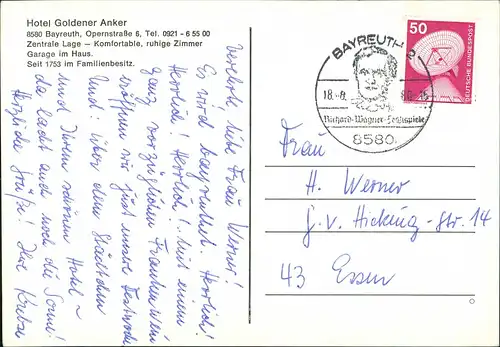 Hotel Goldener Anker
8580 Bayreuth, Opernstraße 6, Tel. 0921 - 6 55 00
Zentrale Lage — Komfortable, ruhige Zimmer
Garage im Haus.
Seit 1753 im Familienbesitz.
Verehrte liebe Frau Werner!
Es wird bayreuthet. Herrlich!
Herrlich! Herrlich! Mit einem
ganz vorzüglichen Frankenwein
eröffnen wir jetzt unsere Festwoche
Und: über dem Städtchen
und Ihrem schönen Hotel ~
da lacht auch noch die Sonne!
Herzliche Grüße! Ihre
BAYREUTH 2
18.-8.
Richard-Wagner-Festspiele
8580
50
DEUTSCHE BUNDESPOST
Frau
H. Werner
J. v. Hicking-Str. 14
43 Essen